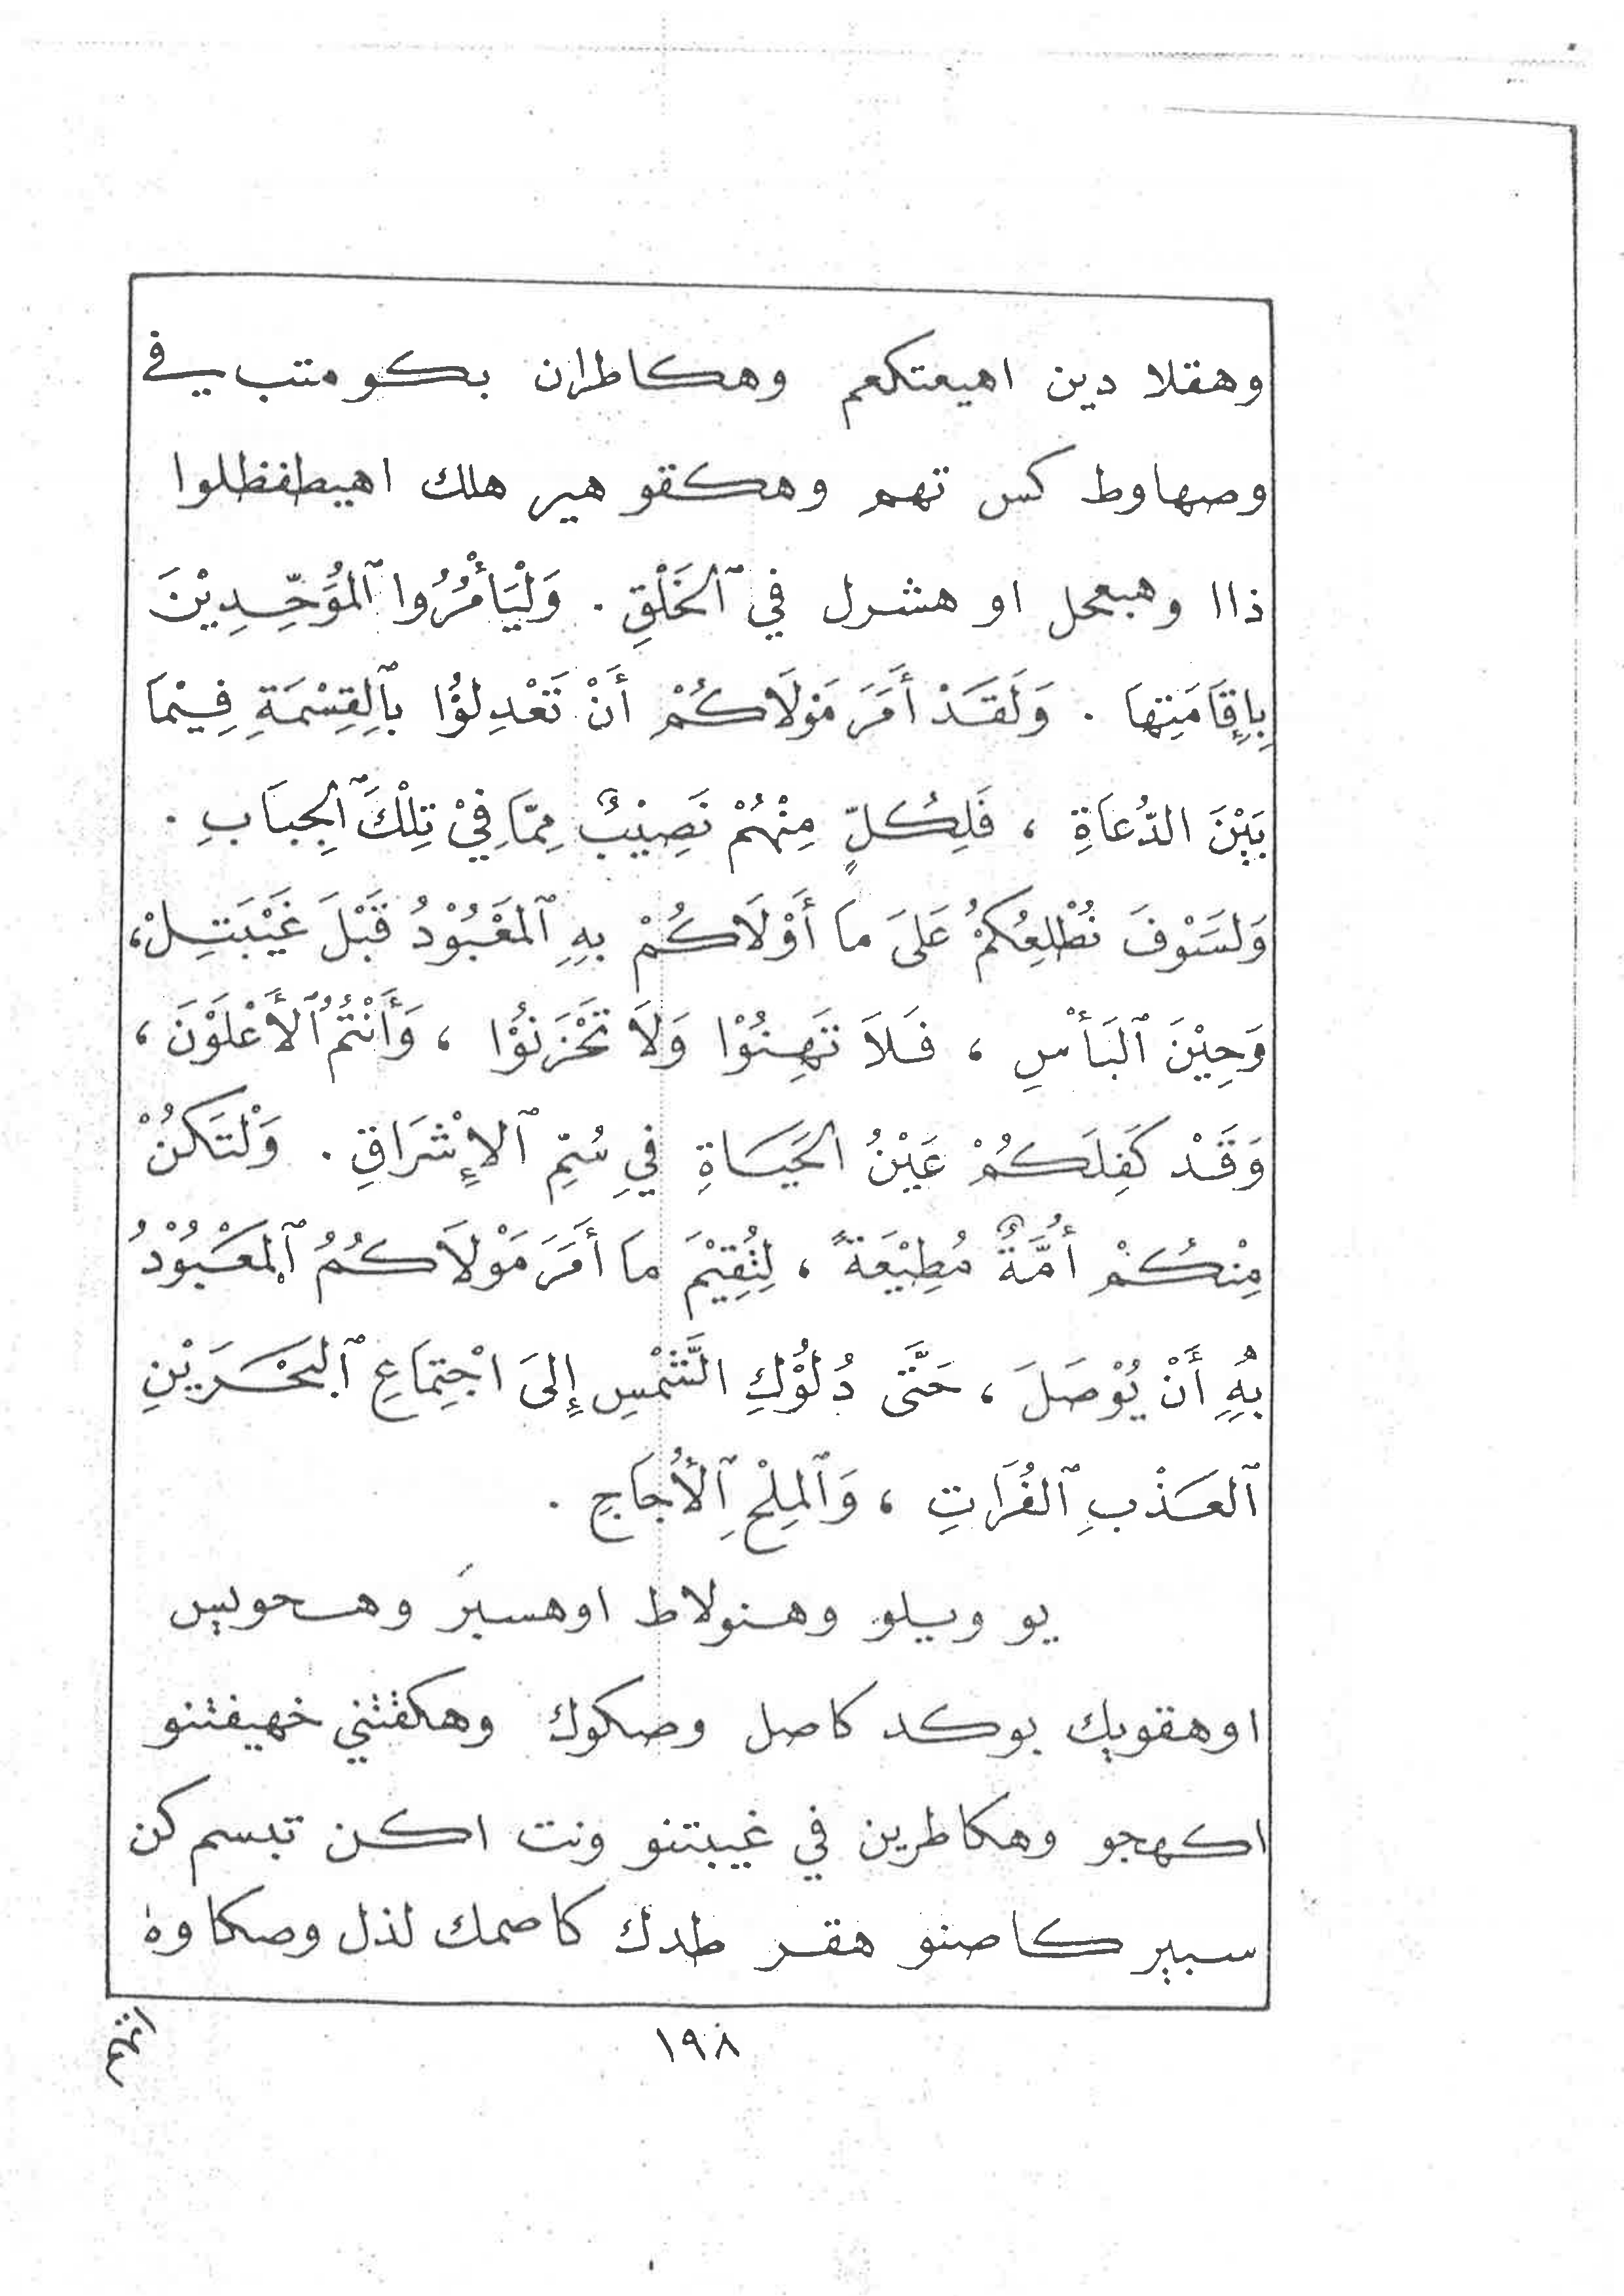 وهقلا دين اهيعتكعم وهكاطران بكو متب يـفي
وصهاوط كس تهم وهكقو هير هلك اهيطفظلوا
ذاا وهبعحل او هشرل في ٱلخَلْقِ . وَلْيَأْمُرُوا ٱلمُوَحِّدِيْنَ
بِإِقَامَتِهَا . وَلَقَدْ أَمَرَ مَوْلَاكُمْ أَنْ تَعْدِلُوْا بِٱلقِسْمَةِ فِيْمَا
بَيْنَ الدُّعَاةِ ، فَلِكُلٍّ مِنْهُمْ نَصِيْبٌ مِمَّا فِيْ تِلْكَ ٱلجِبَابِ .
وَلَسَوْفَ نُطْلِعُكُمْ عَلَىَ مَا أَوْلَاكُمْ بِهِ ٱلمَعْبُوْدُ قَبْلَ غَيْبَتِـلْ،
وَحِيْنَ ٱلبَأْسِ ، فَلَا تَهِنُوْا وَلَا تَحْزَنُوْا ، وَأَنْتُمُ ٱلأَعْلَوْنَ ،
وَقَدْ كَفِلَكُمْ عَيْنُ الحَيَاةِ فِي سُتِّمِ ٱلإِشْرَاقِ . وَلْتَكُنْ
مِنْكُمْ أُمَّةٌ مُطِيْعَةً ، لِنُقِيْمَ مَا أَمَرَ مَوْلَاكُمُ ٱلمَعْبُوْدُ
بِهِ أَنْ يُوْصَلَ ، حَتَّى دُلُوْكِ الشَّمْسِ إِلىَ اجْتِمَاعِ ٱلبَحْرَيْنِ
ٱلعَذْبِ ٱلفُرَاتِ ، وَٱلمِلْحِ ٱلأُجَاجِ .
يو ويلو وهنولاط اوهسيرَ وهحوييس
اوهقويك بوكد كاصل وصكوك وهكفثني خهيفثنو
اكهجو وهكاطرين في غيبتنو ونت اكن تبسم كن
سبير كاصنو هقر طدك كاصمك لذل وصكاوه
١٩٨